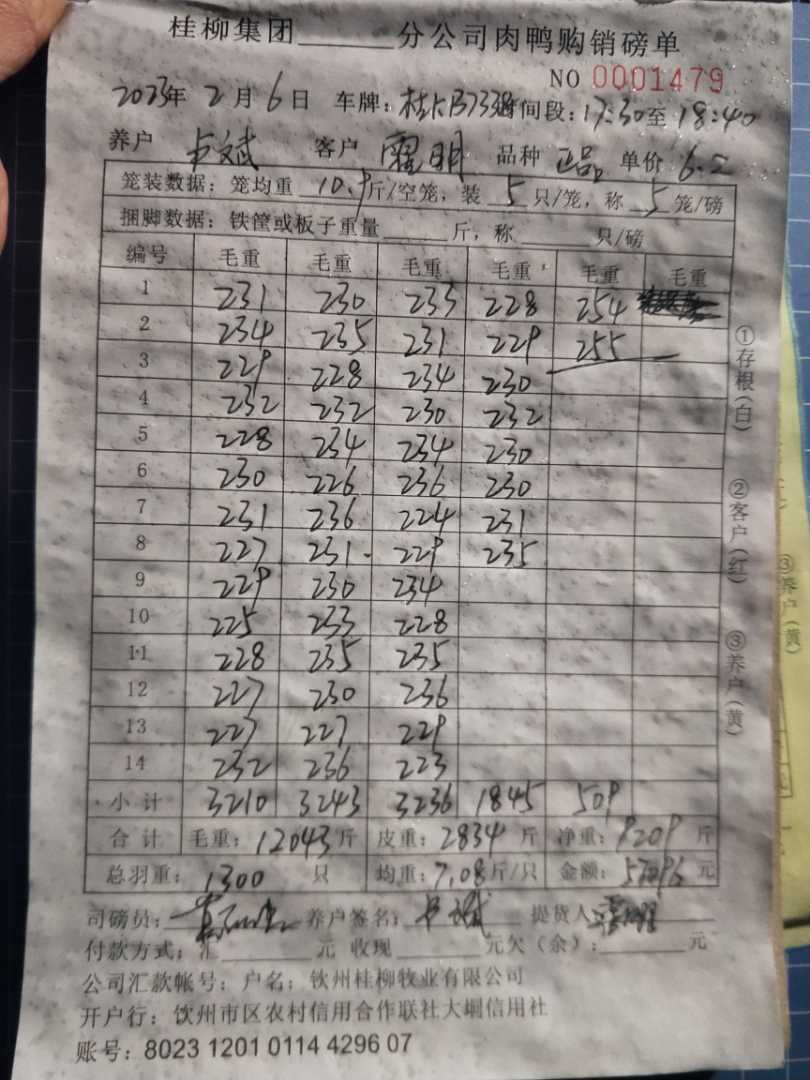 桂柳集团______分公司肉鸭购销磅单
NO 0001479
2023年 2月 6日 车牌: 时间段: 17:30至 18:40
养户 卢斌 客户 明 品种 正品 单价 6.2
笼装数据: 笼均重 10.9斤/空笼, 装 5 只/笼, 称 5 笼/磅
捆脚数据: 铁筐或板子重量______斤, 称______只/磅
编号 毛重 毛重 毛重 毛重 毛重 毛重
1 231 230 233 228 254
2 234 235 231 229 255
3 229 228 234 230
4 232 232 230 232
5 228 234 234 230
6 230 226 236 230
7 231 236 224 231
8 227 231 229 235
9 229 230 234
10 225 233 228
11 228 235 235
12 227 230 236
13 227 227 229
14 232 236 223
小计 3210 3243 3236 1845 509
合计 毛重: 12043斤 皮重: 2834斤 净重: 9209斤
总羽重: 1300 只 均重: 7.08斤/只 金额: 57096元
司磅员: 养户签名: 卢斌 提货人
付款方式: 汇______元 收现______元欠(余):______元
公司汇款帐号: 户名: 钦州桂柳牧业有限公司
开户行: 钦州市区农村信用合作联社大垌信用社
账号: 8023 1201 0114 4296 07
①存根(白)
②客户(红)
③养户(黄)
③养户(黄)